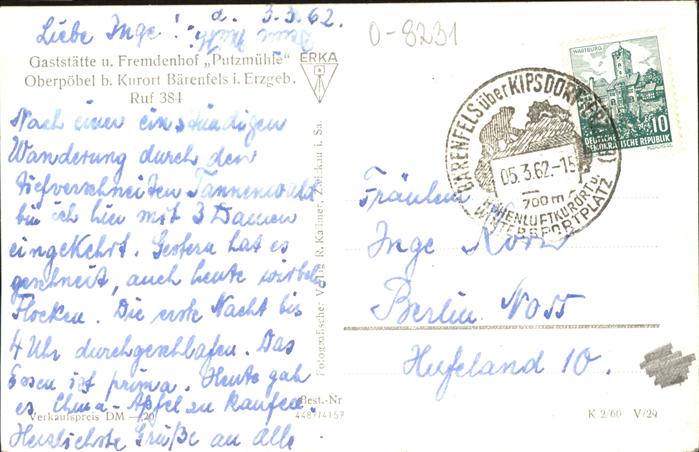 d. 3.3.62.
Liebe Inge!
Gaststätte u. Fremdenhof „Putzmühle"
Oberpöbel b. Kurort Bärenfels i. Erzgeb.
Ruf 384
ERKA
Nach einer einstündigen
Wanderung durch den
tiefverschneiten Tannenwald
bin ich hier mit 3 Damen
eingekehrt. Gestern hat es
geschneit, auch heute wirbeln
Flocken. Die erste Nacht bis
4 Uhr durchgeschlafen. Das
Essen ist prima. Heute gab
es China-Apfel zu kaufen.
Verkaufspreis DM —,20
Herzlichste Grüße an alle
Fotografische Verlag R. Kallmer, Zwickau i. Sa.
Best.-Nr
448/74157
0-8231
BÄRENFELS über KIPSDORF
05.3.62.-15
700 m
HÖHENLUFTKURORT u.
WINTERSPORTPLATZ
WARTBURG
DEUTSCHE
DEMOKRATISCHE REPUBLIK
10
Fräulein
Inge
Berlin NO55
Hufeland 10.
K 2/60 V/29